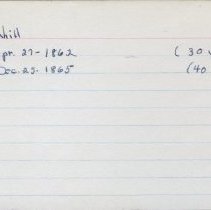 pr. 27-1862 (30
Dec. 25-1865 (40